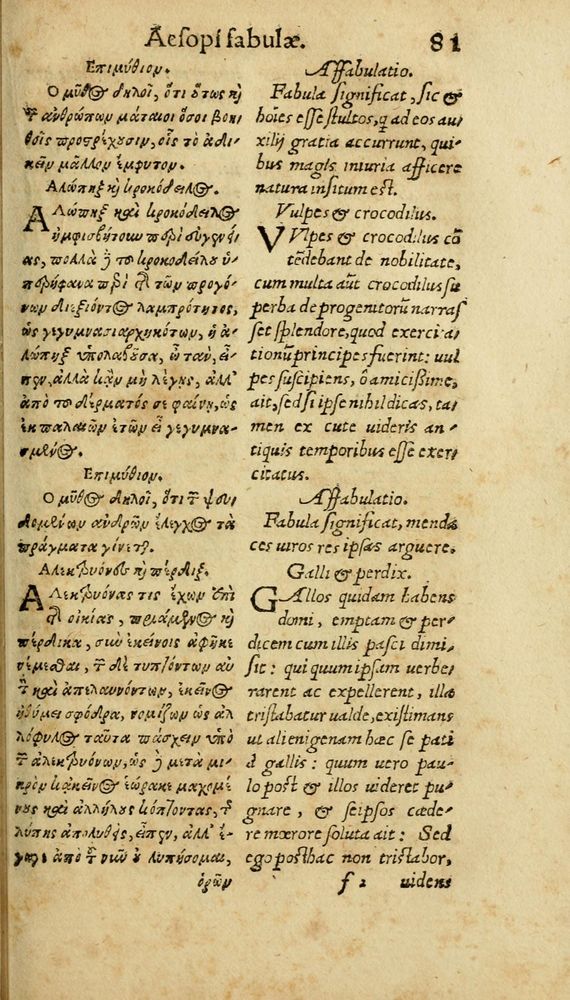 Aesopi fabulæ. 81
Επιμύθιον.
Ο μῦθος δηλοῖ, ὅτι ὅτως κỳ
τ ἀνθρώπων μάταιοι ὅσοι βοη
θοῖς προστρέχουσιν, οἷς τὸ ἀδι
κεῖν μᾶλλον ἔμφυτον.
Αλώπηξ κỳ κροκόδειλος.
Αλώπηξ καὶ κροκόδειλος
ἠμφισβήτουν περὶ εὐγενεί
ας, πολλὰ ἢ τοῦ κροκοδείλου ὑ
περήφανα περὶ τ τῶν προγό
νων διεξιόντος λαμπρότητος,
ὡς γεγυμνασιαρχηκότων, ἡ ἀ
λώπηξ ὑπολαβοῦσα, ὦ ταν, εἶ
πεν, ἀλλὰ κἂν μὴ λέγῃς, ἀλλ'
ἀπὸ τοῦ δέρματός σε φαίνῃ, ὡς
ἐκ παλαιῶν ἐτῶν εἶ γεγυμνα-
σμένος.
Επιμύθιον.
Ο μῦθος δηλοῖ, ὅτι τ ψευ
δομένων ἀνδρῶν ἔλεγχος τὰ
πράγματα γίνετ.
Αλεκτρυόνες κỳ πέρδιξ.
Αλεκτρυόνας τις ἔχων ἐπὶ
τ οἰκίας, πριάμενος κỳ
πέρδικα, σὺν ἐκείνοις ἀφῆκε
νέμεσθαι, τ δὲ τυπτόντων αὐ
τ καὶ ἀπελαυνόντων, ἐκεῖνος
ἠθύμει σφόδρα, νομίζων ὡς ἀλ
λόφυλος ταῦτα πάσχειν ὑπὸ
τ ἀλεκτρυόνων, ὡς ἢ μετὰ μι
κρὸν κἀκείνους ἑώρακε μαχομέ
νους καὶ ἀλλήλους κόπτοντας, τ
λύπης ἀπολυθεὶς, εἶπεν, ἀλλ' ἔ-
γωγε ἀπὸ τ νῦν οὐ λυπήσομαι,
ὁρῶν
Affabulatio.
Fabula significat, sic &
hoĩes esse stultos, q ad eos au
xilij gratia accurrunt, qui
bus magis iniuria afficere
natura insitum est.
Vulpes & crocodilus.
VVlpes & crocodilus cõ
tẽdebant de nobilitate,
cum multa aũt crocodilus su
perba de progenitorũ narras
set splendore, quod exercita
tionũ principes fuerint: uul
pes suscipiens, ô amicissime,
ait, sed si ipse nihil dicas, ta
men ex cute uideris an
tiquis temporibus esse exer
citatus.
Affabulatio.
Fabula significat, menda
ces uiros res ipsas arguere.
Galli & perdix.
GAllos quidam habens
domi, emptam & per
dicem cum illis pasci dimi
sit: qui quum ipsam uerbe
rarent ac expellerent, illa
tristabatur ualde, existimans
ut alienigenam hæc se pati
à gallis: quum uero pau
lo post & illos uideret pu
gnare, & seipsos cæde
re mœrore soluta ait: Sed
ego posthac non tristabor,
f 2 uidens